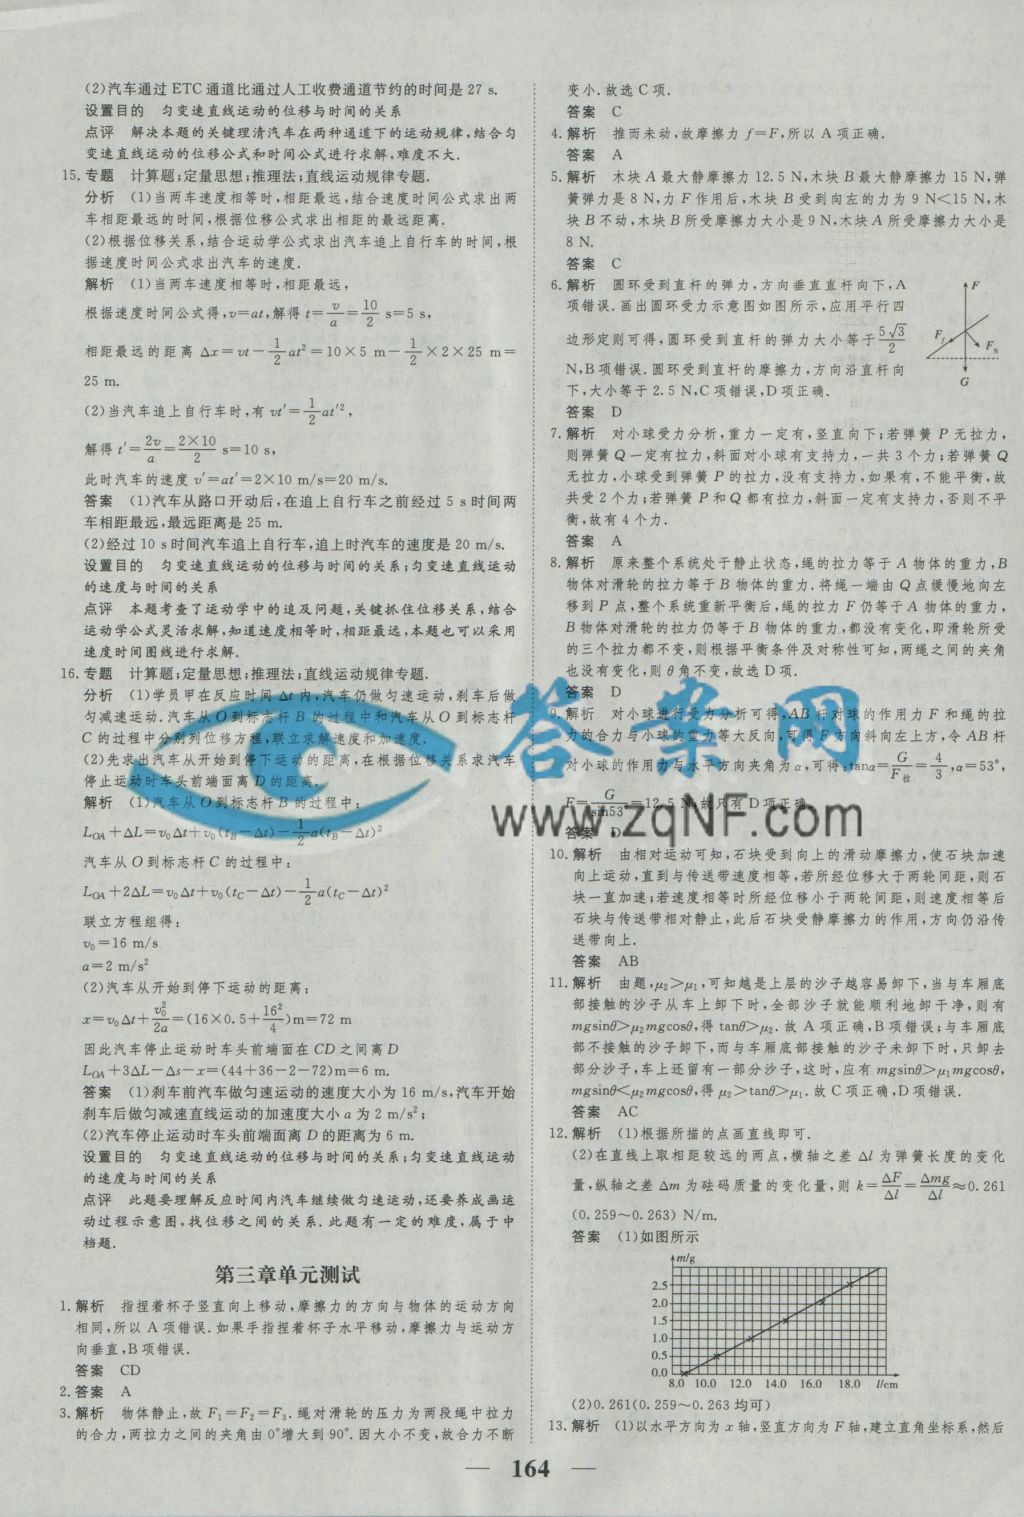 (2)汽车通过 ETC 通道比通过人工收费通道节约的时间是 27 s.
设置目的 匀变速直线运动的位移与时间的关系
点评 解决本题的关键理清汽车在两种通道下的运动规律,结合匀
变速直线运动的位移公式和时间公式进行求解,难度不大.
15. 专题 计算题;定量思想;推理法;直线运动规律专题.
分析 (1)当两车速度相等时,相距最远,结合速度时间公式求出两
车相距最远的时间,根据位移公式求出相距的最远距离.
(2)根据位移关系,结合运动学公式求出汽车追上自行车的时间,根
据速度时间公式求出汽车的速度.
解析 (1)当两车速度相等时,相距最远,
根据速度时间公式得,v=at,解得 t=v/a=10/2 s=5 s,
相距最远的距离 Δx=vt-1/2at²=10×5 m-1/2×2×25 m=
25 m.
(2)当汽车追上自行车时,有 vt′=1/2at′²,
解得 t′=2v/a=2×10/2 s=10 s,
此时汽车的速度 v′=at′=2×10 m/s=20 m/s.
答案 (1)汽车从路口开动后,在追上自行车之前经过 5 s 时间两
车相距最远,最远距离是 25 m.
(2)经过 10 s 时间汽车追上自行车,追上时汽车的速度是 20 m/s.
设置目的 匀变速直线运动的位移与时间的关系;匀变速直线运动
的速度与时间的关系
点评 本题考查了运动学中的追及问题,关键抓住位移关系,结合
运动学公式灵活求解,知道速度相等时,相距最远,本题也可以采用
速度时间图线进行求解.
16. 专题 计算题;定量思想;推理法;直线运动规律专题.
分析 (1)学员甲在反应时间 Δt 内,汽车仍做匀速运动,刹车后做
匀减速运动.汽车从 O 到标志杆 B 的过程中和汽车从 O 到标志杆
C 的过程中分别列位移方程,联立求解速度和加速度.
(2)先求出汽车从开始到停下运动的距离,在根据位移关系求汽车
停止运动时车头前端面离 D 的距离.
解析 (1)汽车从 O 到标志杆 B 的过程中:
L_OA+ΔL=v₀Δt+v₀(t_B-Δt)-1/2a(t_B-Δt)²
汽车从 O 到标志杆 C 的过程中:
L_OA+2ΔL=v₀Δt+v₀(t_C-Δt)-1/2a(t_C-Δt)²
联立方程组得:
v₀=16 m/s
a=2 m/s²
(2)汽车从开始到停下运动的距离:
x=v₀Δt+v₀²/2a=(16×0.5+16²/4)m=72 m
因此汽车停止运动时车头前端面在 CD 之间离 D
L_OA+3ΔL-Δs-x=(44+36-2-72)m=6 m.
答案 (1)刹车前汽车做匀速运动的速度大小为 16 m/s,汽车开始
刹车后做匀减速直线运动的加速度大小 a 为 2 m/s²;
(2)汽车停止运动时车头前端面离 D 的距离为 6 m.
设置目的 匀变速直线运动的位移与时间的关系;匀变速直线运动
的速度与时间的关系
点评 此题要理解反应时间内汽车继续做匀速运动,还要养成画运
动过程示意图,找位移之间的关系.此题有一定的难度,属于中
档题.
第三章单元测试
1. 解析 指捏着杯子竖直向上移动,摩擦力的方向与物体的运动方向
相同,所以 A 项错误.如果手指捏着杯子水平移动,摩擦力与运动方
向垂直,B 项错误.
答案 CD
2. 答案 A
3. 解析 物体静止,故 F₁=F₂=F₃.绳对滑轮的压力为两段绳中拉力
的合力,两拉力之间的夹角由 0°增大到 90°.因大小不变,故合力不断
变小.故选 C 项.
答案 C
4. 解析 推而未动,故摩擦力 f=F,所以 A 项正确.
答案 A
5. 解析 木块 A 最大静摩擦力 12.5 N,木块 B 最大静摩擦力 15 N,弹
簧弹力是 8 N,力 F 作用后,木块 B 受到向左的力为 9 N<15 N,木
块 B 不动,木块 B 所受摩擦力大小是 9 N,木块 A 所受摩擦力大小是
8 N.
答案 C
6. 解析 圆环受到直杆的弹力,方向垂直直杆向下,A
项错误.画出圆环受力示意图如图所示,应用平行四
边形定则可得,圆环受到直杆的弹力大小等于5√3/2
N,B 项错误.圆环受到直杆的摩擦力,方向沿直杆向
下,大小等于 2.5 N,C 项错误,D 项正确.
F
F_f
F_N
G
答案 D
7. 解析 对小球受力分析,重力一定有,竖直向下;若弹簧 P 无拉力,
则弹簧 Q 一定有拉力,斜面对小球有支持力,一共 3 个力;若弹簧 Q
无拉力,小球受到弹簧 P 的拉力,没有支持力,如果有,不能平衡,故
共受 2 个力;若弹簧 P 和 Q 都有拉力,斜面一定有支持力,否则不平
衡,故有 4 个力.
答案 A
8. 解析 原来整个系统处于静止状态,绳的拉力等于 A 物体的重力,B
物体对滑轮的拉力等于 B 物体的重力.将绳一端由 Q 点缓慢地向左
移到 P 点,整个系统重新平衡后,绳的拉力 F 仍等于 A 物体的重力,
B 物体对滑轮的拉力仍等于 B 物体的重力,都没有变化,即滑轮所受
的三个拉力都不变,则根据平衡条件及对称性可知,两绳之间的夹角
也没有变化,则 θ 角不变,故选 D 项.
答案 D
9. 解析 对小球进行受力分析可得,AB 杆对球的作用力 F 和绳的拉
力的合力与小球的重力等大反向,可得 F 方向斜向左上方,令 AB 杆
对小球的作用力与水平方向夹角为 α,可得:tanα=G/F拉=4/3,α=53°,
F=G/sin53°=12.5 N.故只有 D 项正确.
答案 D
10. 解析 由相对运动可知,石块受到向上的滑动摩擦力,使石块加速
向上运动,直到与传送带速度相等,若所经位移大于两轮间距,则石
块一直加速;若速度相等时所经位移小于两轮间距,则速度相等后
石块与传送带相对静止,此后石块受静摩擦力的作用,方向仍沿传
送带向上.
答案 AB
11. 解析 由题,μ₂>μ₁,可知越是上层的沙子越容易卸下,当与车厢底
部接触的沙子从车上卸下时,全部沙子就能顺利地卸干净,则有
mgsinθ>μ₂mgcosθ,得 tanθ>μ₂.故 A 项正确,B 项错误;与车厢底
部不接触的沙子卸下,而与车厢底部接触的沙子未卸下时,只卸去
部分沙子,车上还留有一部分沙子,这时,应有 mgsinθ>μ₁mgcosθ,
mgsinθ<μ₂mgcosθ,得 μ₂>tanθ>μ₁.故 C 项正确,D 项错误.
答案 AC
12. 解析 (1)根据所描的点画直线即可.
(2)在直线上取相距较远的两点,横轴之差 Δl 为弹簧长度的变化
量,纵轴之差 Δm 为砝码质量的变化量,则 k=ΔF/Δl=Δmg/Δl≈0.261
(0.259~0.263) N/m.
答案 (1)如图所示
m/g
2.5
2.0
1.5
1.0
0.5
0.0
8.0 10.0 12.0 14.0 16.0 18.0 l/cm
(2)0.261(0.259~0.263 均可)
13. 解析 (1)以水平方向为 x 轴,竖直方向为 F 轴,建立直角坐标系,然后
— 164 —
答案网
www.zqNF.com